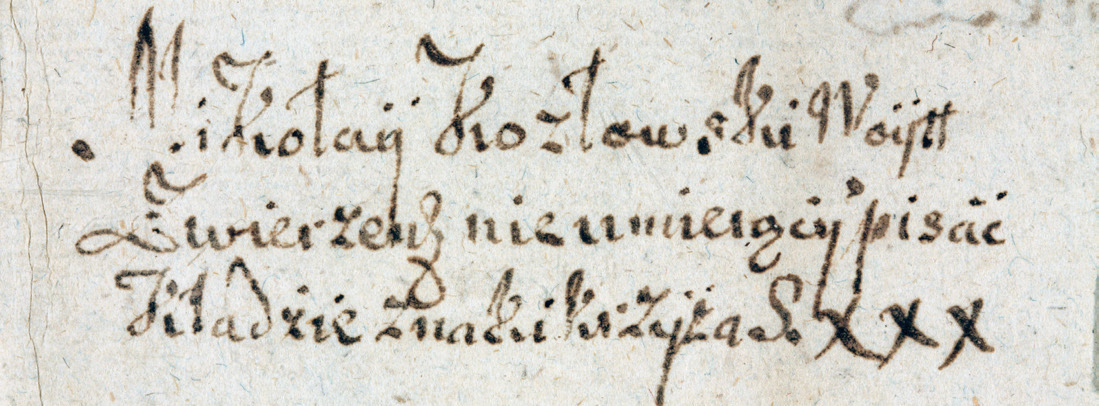 Mikołaÿ Kozłowski Woÿtt
Zwierzen nie umieiący pisać
Kładzie znaki krzyża S. x x x